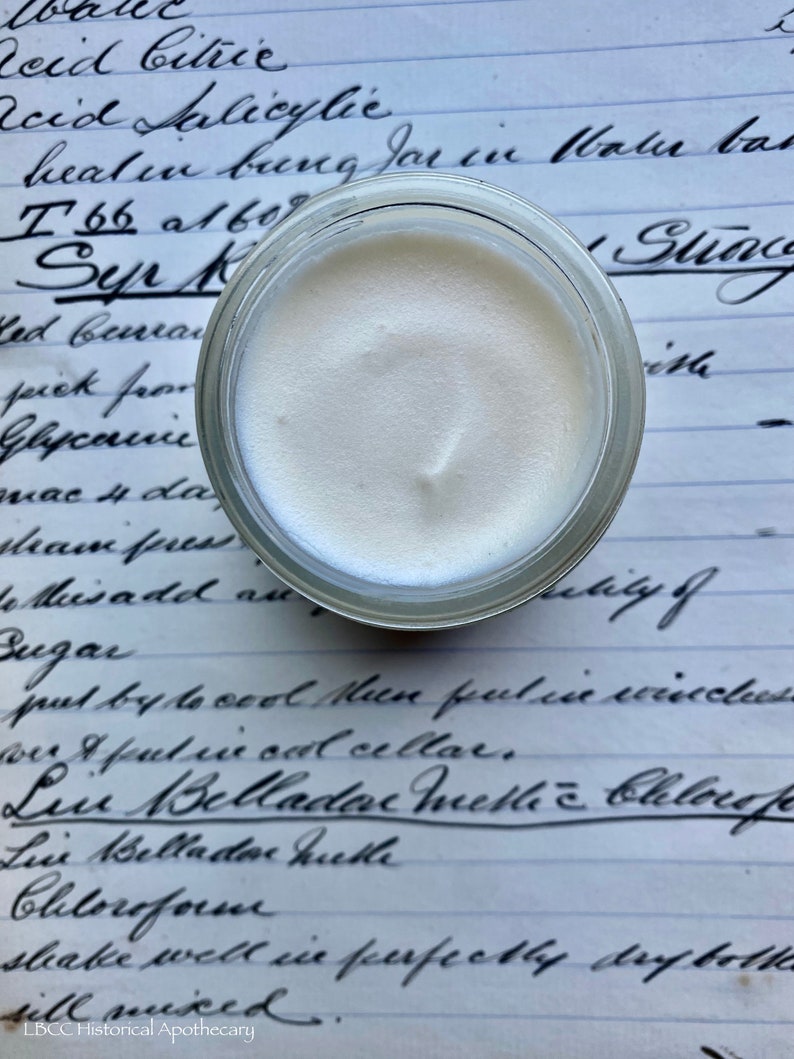 Water
Acid Citric
Acid Salicylic
heat in bung Jar in Water bath
T 66 at 60°
Syr R Strong
Red Curran
pick from with
Glycerine
mac 4 day
strain press
to this add an quantity of
Sugar
put by to cool then put in winches
over & put in cool cellar.
Lin Belladon Meth c̄ Chlorof
Lin Belladon Meth
Chloroform
shake well in perfectly dry bottle
till mixed.
LBCC Historical Apothecary